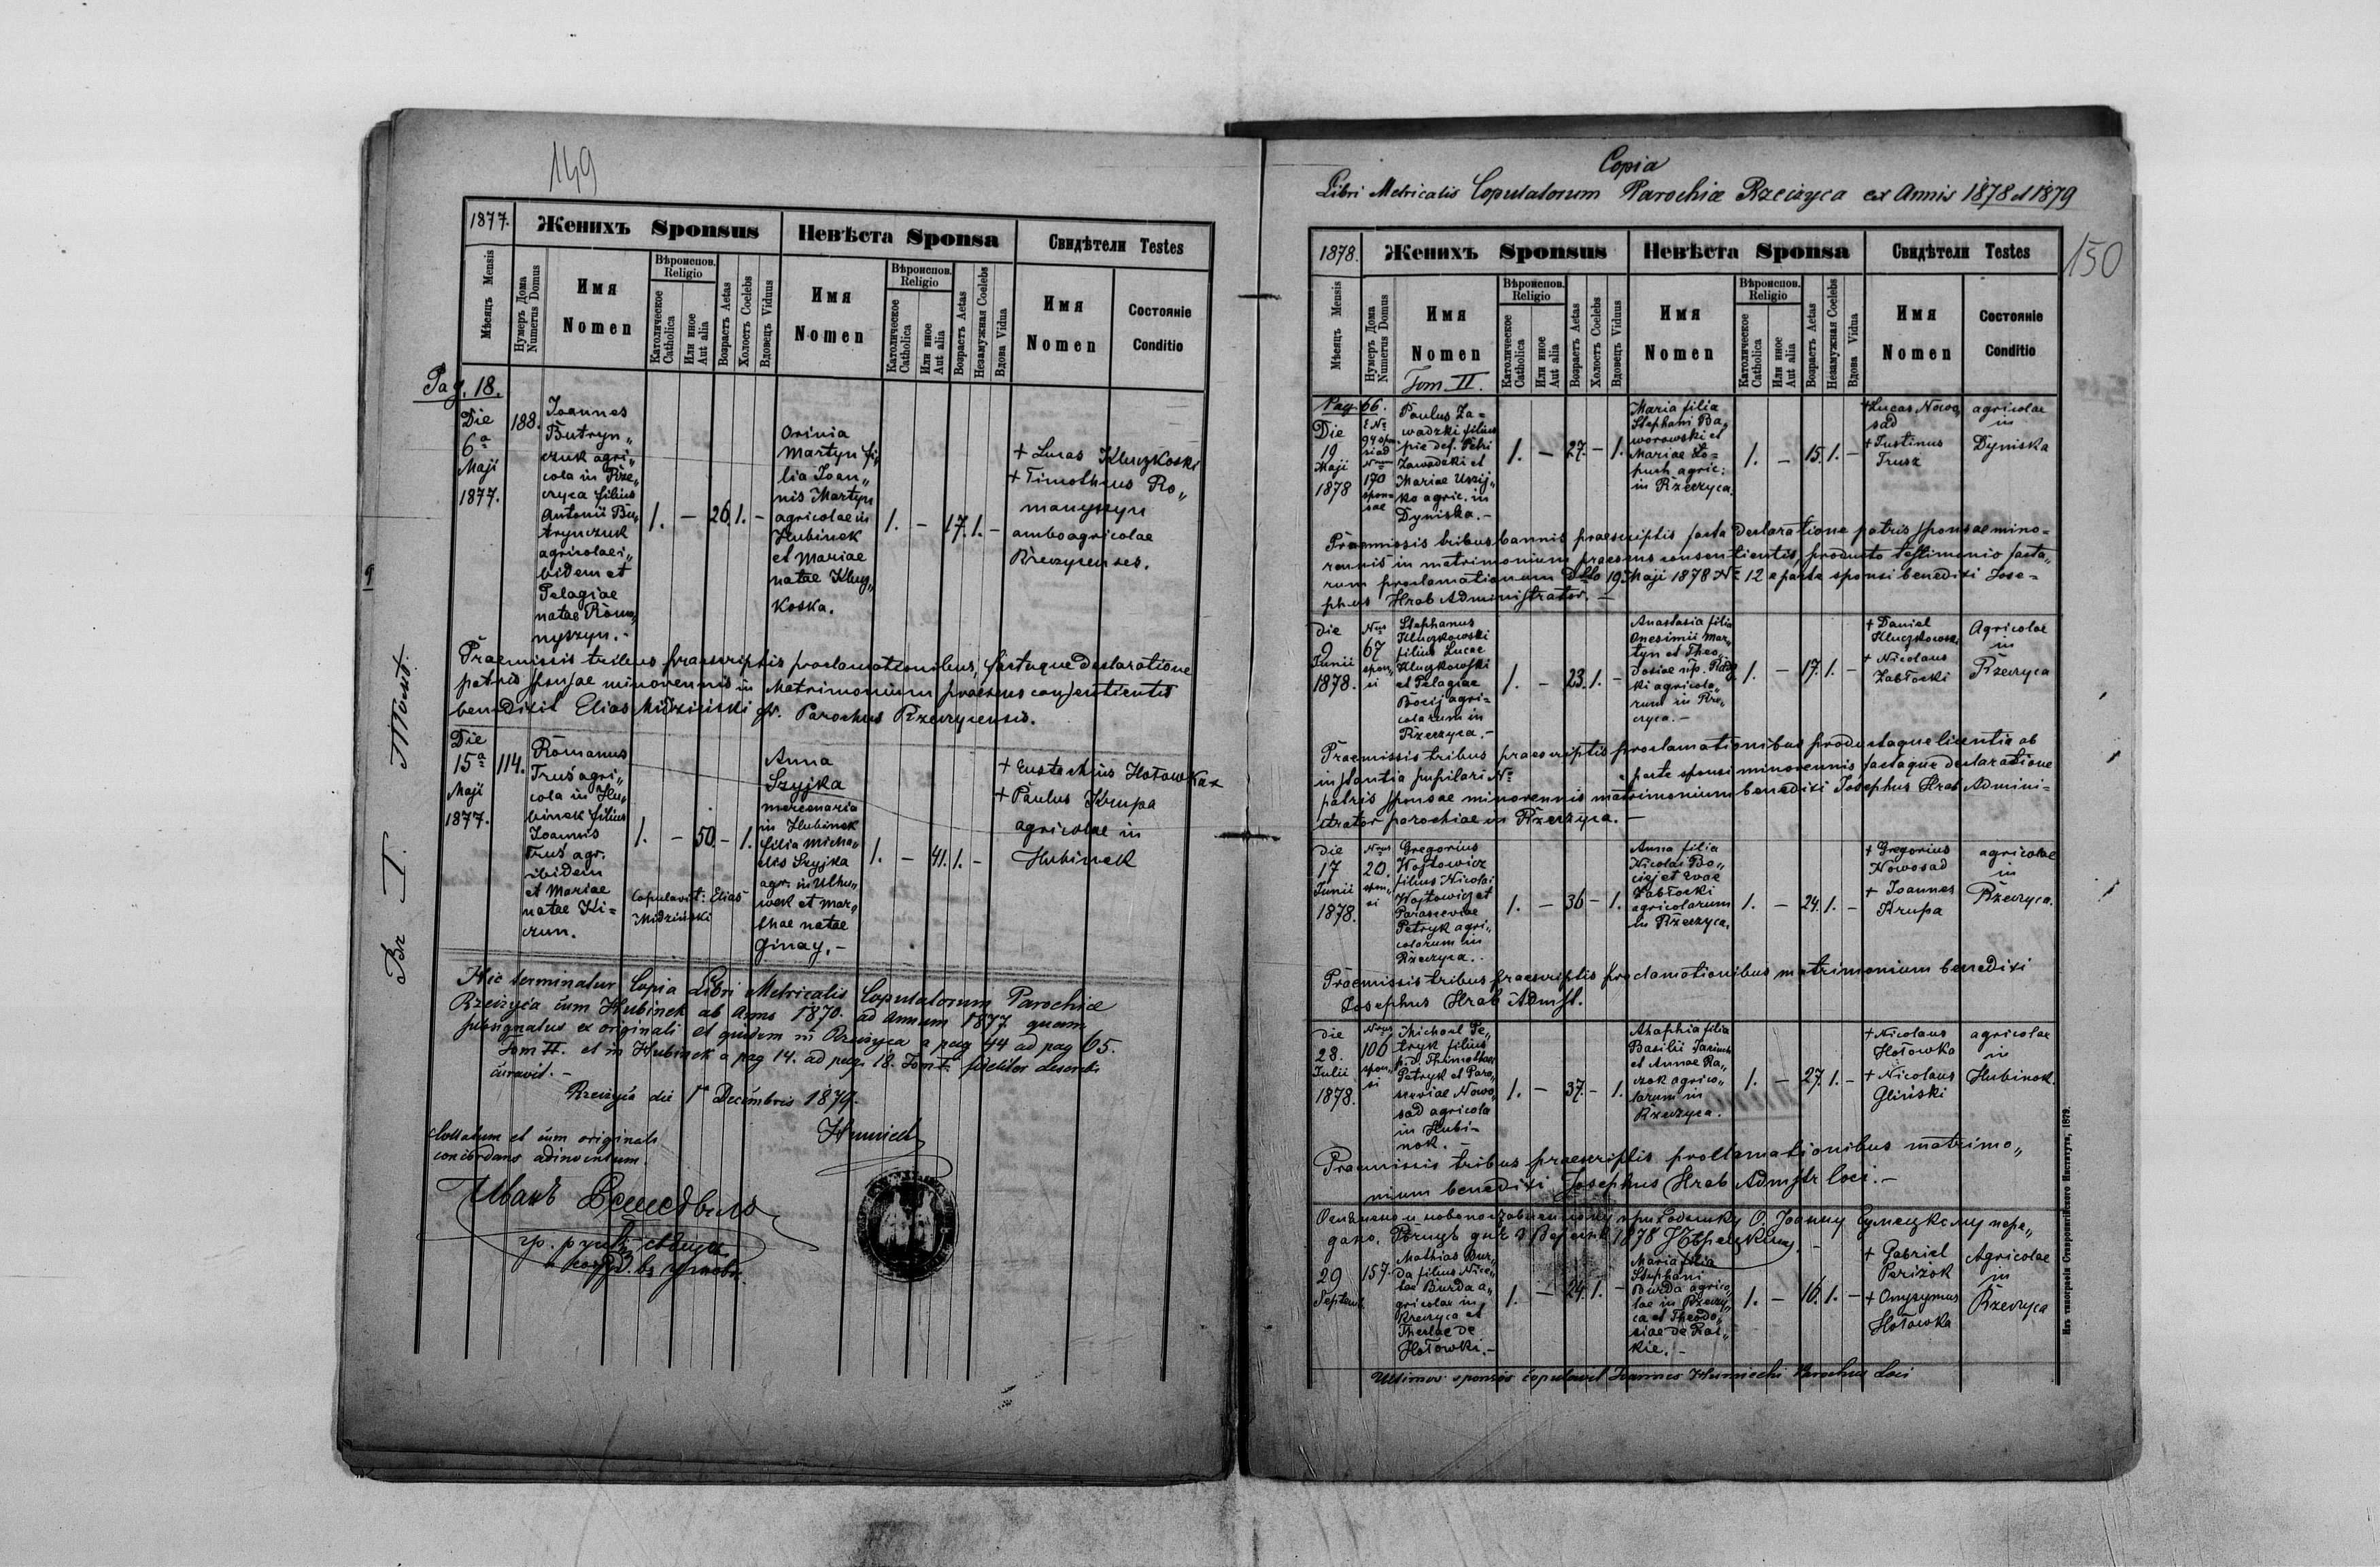 149
1877.
Женихъ Sponsus
Невѣста Sponsa
Свидѣтели Testes
Мѣсяцъ Mensis
Нумеръ Дома
Numerus Domus
Имя
Nomen
Вѣроиспов.
Religio
Католическое
Catholica
Или иное
Aut alia
Возрастъ Aetas
Холостъ Coelebs
Вдовецъ Viduus
Имя
Nomen
Вѣроиспов.
Religio
Католическое
Catholica
Или иное
Aut alia
Возрастъ Aetas
Незамужная Coelebs
Вдова Vidua
Имя
Nomen
Состояніе
Conditio
Pag. 18.
Die
6a
Maji
1877.
188.
Joannes
Butryn„
czuk agri„
cola in Rze„
czyca filius
Antonii Bu„
trynczuk
agricolae i„
bidem et
Pelagiae
natae Roma„
nyszyn.-
1. — 26. 1. —
Orinia
Martyn fi„
lia Joan„
nis Martyn
agricolae in
Hubinek
et Mariae
natae Klucz„
koska.
1. — 17. 1. —
+ Lucas Kluczkoski
+ Timotheus Ro„
manyszyn
ambo agricolae
Rzeczycenses.
Praemissis tribus praescriptis proclamationibus, factaque declaratione
patris sponsae minorennis in Matrimonium praesens consentientis
benedixit Elias Midziński gr. Parochus Rzeczycensis.
Die
15a
Maji
1877.
114.
Romanus
Truś agri„
cola in Hu„
binek filius
Joannis
Truś agr.
ibidem
et Mariae
natae Ki=
czun.
1. — 50. — 1.
Copulavit: Elias
Midziński
Anna
Szyjka
mercenaria
in Hubinek
filia Micha„
elis Szyjka
agr. in Ulhu„
wek et Mar„
thae natae
Ginay.-
1. — 41. 1. —
+ Eustachius Hołowka
+ Paulus Krupa
agricolae in
Hubinek
Hic terminatur Copia Libri Metricalis Copulatorum Parochiæ
Rzeczyca cum Hubinek ab Anno 1870. ad annum 1877 quam
subsignatus ex originali et quidem in Rzeczyca a pag 44 ad pag 65.
Tom II. et in Hubinek a pag 14. ad pag. 18. Tom I. fideliter describi
curavit.-
Rzeczyca die 1a Decembris 1879.
Collatum et cum originali
concordans adinventum.
Иванъ
Br I. Nowt.
9
Copia
Libri Metricalis Copulatorum Parochiæ Rzeczyca ex Annis 1878 et 1879
150
1878.
Женихъ Sponsus
Невѣста Sponsa
Свидѣтели Testes
Мѣсяцъ Mensis
Нумеръ Дома
Numerus Domus
Имя
Nomen
Tom. II.
Вѣроиспов.
Religio
Католическое
Catholica
Или иное
Aut alia
Возрастъ Aetas
Холостъ Coelebs
Вдовецъ Viduus
Имя
Nomen
Вѣроиспов.
Religio
Католическое
Catholica
Или иное
Aut alia
Возрастъ Aetas
Незамужная Coelebs
Вдова Vidua
Имя
Nomen
Состояніе
Conditio
Pag. 66.
Die
19
Maji
1878
190
spon=
sae
Paulus Za=
wadzki filius
pie def. Petri
Zawadzki et
Mariae Uszij„
ko agric. in
Dyniska.-
1. — 27. — 1.
Maria filia
Stephani Ba„
worowski et
Mariae Ło=
puch agric:
in Rzeczyca.
1. — 15. 1. —
+ Lucas Nowo„
sad
+ Justinus
Trusz
agricolae
in
Dyniska
Praemissis tribus bannis praescriptis facta declaratione patris sponsae mino=
rennis in matrimonium praesens consentientis, producto testimonio facta„
rum proclamationum Dtto 19 Maji 1878 Nr 12 e parte sponsi benedixi Jose=
phus Hrab Administrator.-
die
9
Junii
1878.
Nus
67
spon„
si
Stephanus
Kluczkowski
filius Lucae
Kluczkowski
et Pelagiae
Bocij agri=
colarum in
Rzeczyca.-
1. — 23. 1. —
Anastasia filia
Onesimii Mar„
tyn et Theo„
dosiae
ki agricola„
rum in Rze„
czyca.-
1. — 17. 1. —
+ Daniel
Kluczkowski
+ Nicolaus
Zabłocki
Agricolae
in
Rzeczyca
Praemissis tribus praescriptis proclamationibus productaque licentia ab
instantia pupilari Nr e parte sponsi minorennis factaque declaratione
patris sponsae minorennis matrimonium benedixi Josephus Hrab Admini=
strator parochiae in Rzeczyca.-
die
17
Junii
1878.
Nus
20.
spon„
si
Gregorius
Wojtowicz
filius Nicolai
Wojtowicz et
Parasceviae
Petryk agri„
colarum in
Rzeczyca.
1. — 36 — 1.
Anna filia
Nicolai Bo„
ciej et Evae
Zabłocki
agricolarum
in Rzeczyca.
1. — 24. 1. —
+ Gregorius
Nowosad
+ Joannes
Krupa
agricolae
in
Rzeczyca.
Praemissis tribus praescriptis proclamationibus matrimonium benedixi
Josephus Hrab Admst.
die
28.
Julii
1878.
Nrus
106
spon„
si
Michael Pe„
tryk filius
p. d. Thimothaei
Petryk et Para„
sceviae Nowo„
sad agricola
in Hubi=
nok.-
1. — 37. — 1.
Ahaphia filia
Basilii
et Annae Ra„
czok agrico„
larum in
Rzeczyca.
1. — 27. 1. —
+ Nicolaus
Hołowka
+ Nicolaus
Gliński
agricolae
in
Hubinok.
Praemissis tribus praescriptis proclamationibus matrimo„
nium benedixi Josephus Hrab Admstr loci.-
29
Septemb.
157.
Mathias Bur„
da filius Nico„
lae Burda a„
gricolae in
Rzeczyca et
Theclae de
Hołowki.-
1. — 24. 1. —
Maria filia
Stephani
Burda agrico„
lae in Rzeczy„
ca et Theodo„
siae de Rai„
kie.-
1. — 16. 1. —
+ Gabriel
Perizok
+ Onysymus
Hołowka
Agricolae
in
Rzeczyca
Ultimos sponsos copulavit Joannes Humiecki Parochus Loci
Изъ типографіи Ставропигійского Института, 1879.